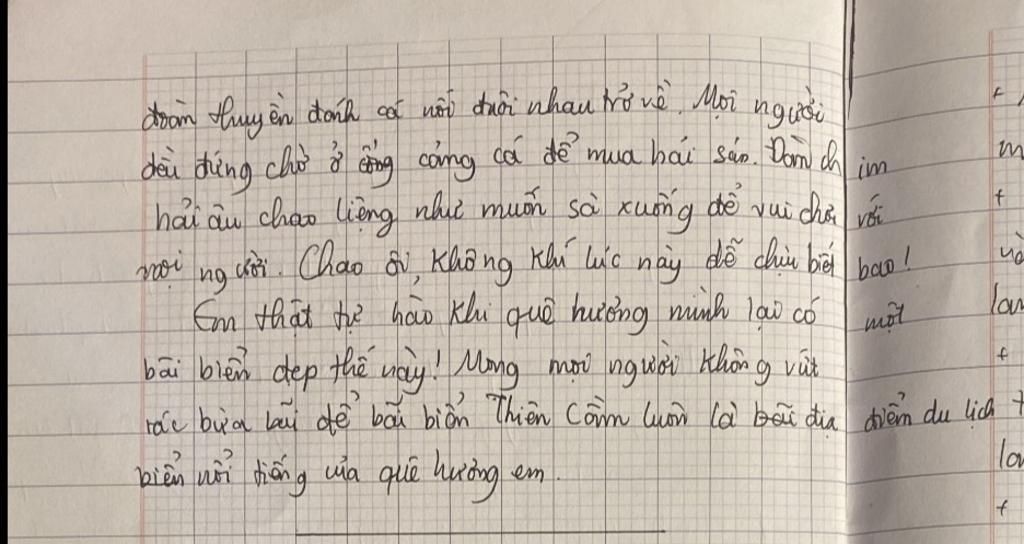 đoàn thuyền đánh cá nối đuôi nhau trở về. Mọi người
đều đứng chờ ở cổng cảng cá để mua hải sản. Đàn chim
hải âu chao liệng như muốn sà xuống để vui chơi với
mọi người. Chao ôi, không khí lúc này dễ chịu biết bao!
Em thật tự hào khi quê hương mình lại có một
bãi biển đẹp thế này! Mong mọi người không vứt
rác bừa bãi để bãi biển Thiên Cầm luôn là bãi địa điểm du lịch
biển nổi tiếng của quê hương em.